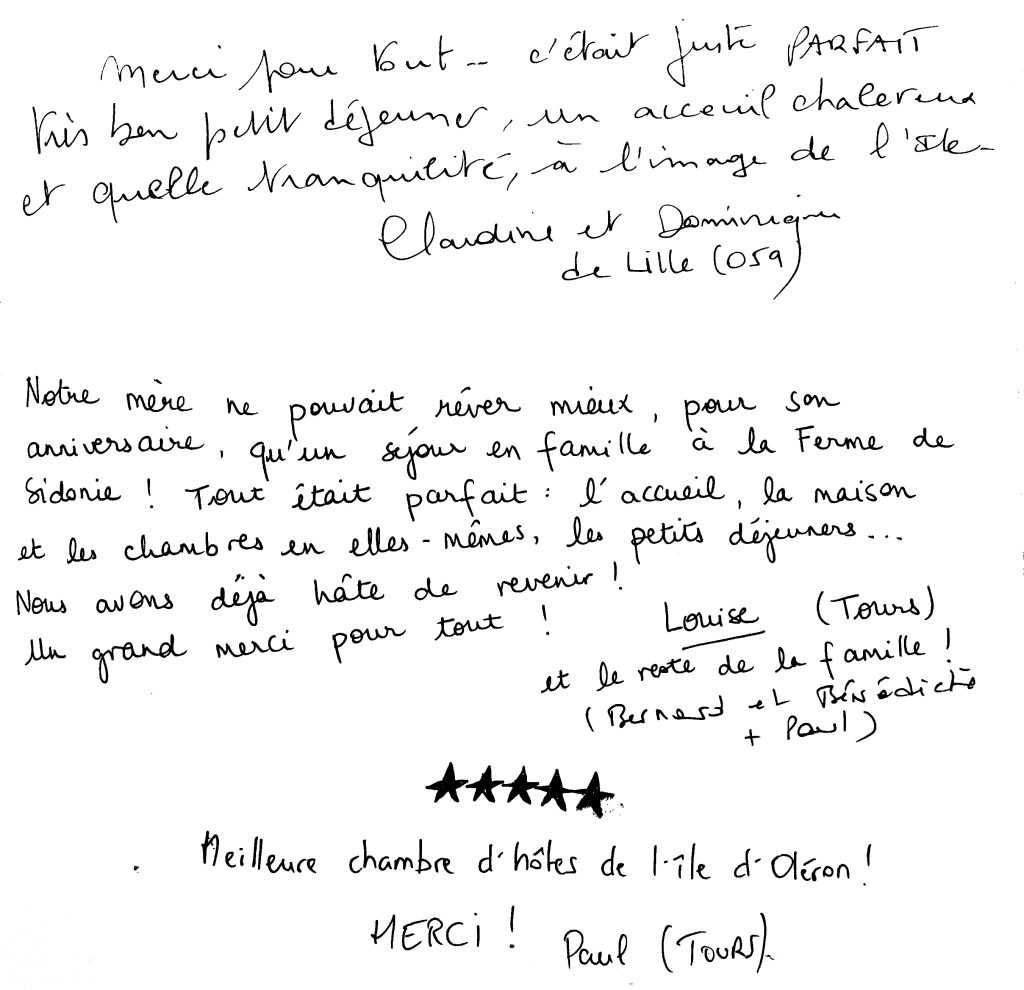 Merci pour tout -- c'était juste PARFAIT
très bon petit déjeuner, un acceuil chalereux
et quelle tranquilité, à l'image de l'Ile-
Claudine et Dominique
de Lille (059)
Notre mère ne pouvait rêver mieux, pour son
anniversaire, qu'un séjour en famille à la Ferme de
Sidonie ! Tout était parfait : l'accueil, la maison
et les chambres en elles-mêmes, les petits déjeuners...
Nous avons déjà hâte de revenir !
Un grand merci pour tout !
Louise (Tours)
et le reste de la famille !
(Bernard et Bénédicte
+ Paul)
★★★★★
Meilleure chambre d'hôtes de l'île d'Oléron !
MERCi !
Paul (TOURS).